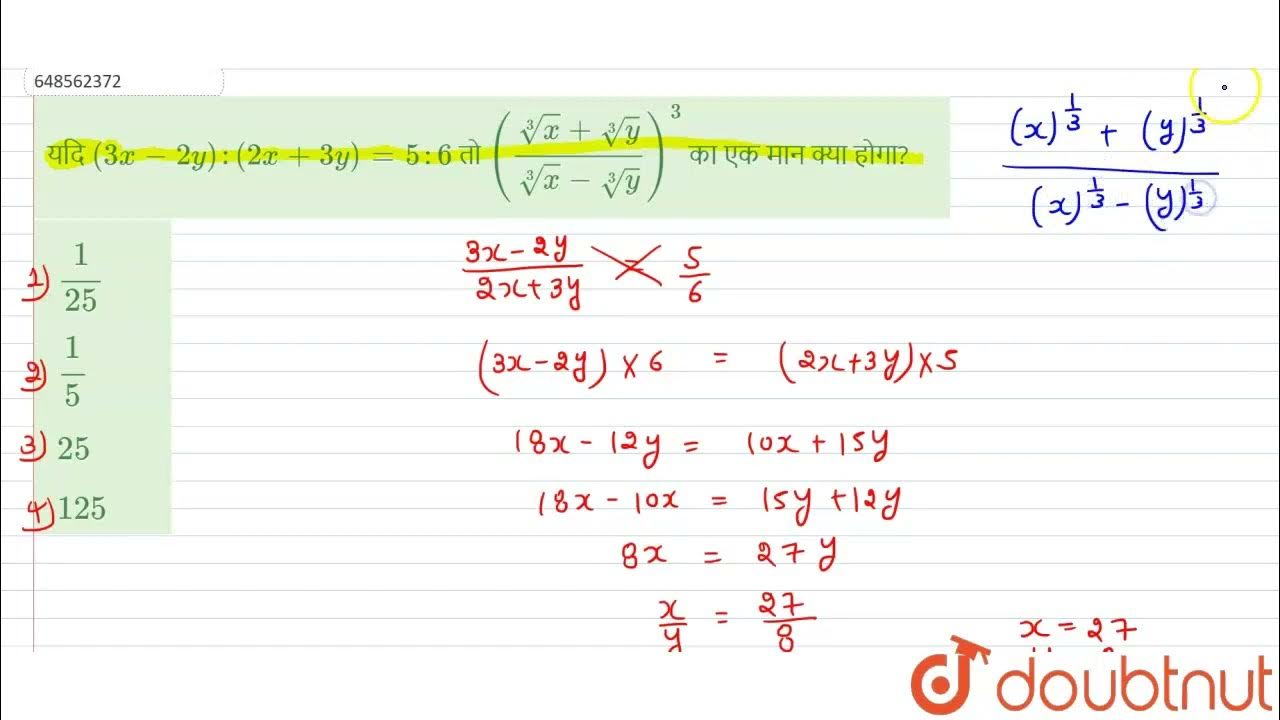 648562372
यदि (3x − 2y) : (2x + 3y) = 5 : 6 तो (∛x + ∛y / ∛x − ∛y)^3 का एक मान क्या होगा?
(x)^1/3 + (y)^1/3
(x)^1/3 − (y)^1/3
1) 1/25
2) 1/5
3) 25
4) 125
3x − 2y / 2x + 3y = 5/6
(3x − 2y) × 6 = (2x + 3y) × 5
18x − 12y = 10x + 15y
18x − 10x = 15y + 12y
8x = 27y
x/y = 27/8
x = 27
doubtnut